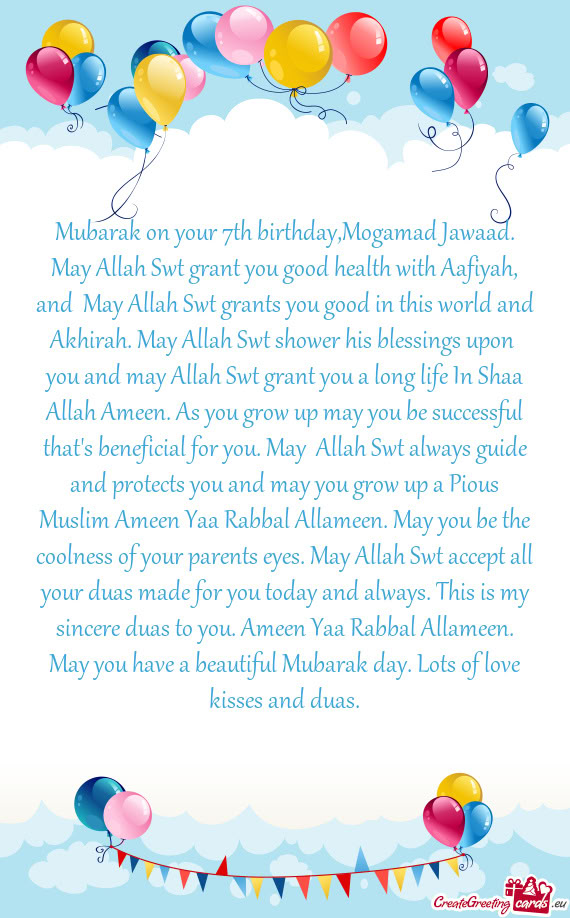 Mubarak on your 7th birthday,Mogamad Jawaad.
May Allah Swt grant you good health with Aafiyah,
and  May Allah Swt grants you good in this world and
Akhirah. May Allah Swt shower his blessings upon
you and may Allah Swt grant you a long life In Shaa
Allah Ameen. As you grow up may you be successful
that's beneficial for you. May  Allah Swt always guide
and protects you and may you grow up a Pious
Muslim Ameen Yaa Rabbal Allameen. May you be the
coolness of your parents eyes. May Allah Swt accept all
your duas made for you today and always. This is my
sincere duas to you. Ameen Yaa Rabbal Allameen.
May you have a beautiful Mubarak day. Lots of love
kisses and duas.
CreateGreetingcards.eu